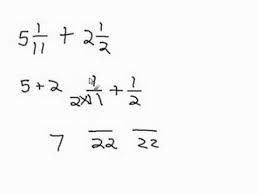 5 1/11 + 2 1/2
5 + 2 1/(2×11) + 1/2
7 —/22 —/22